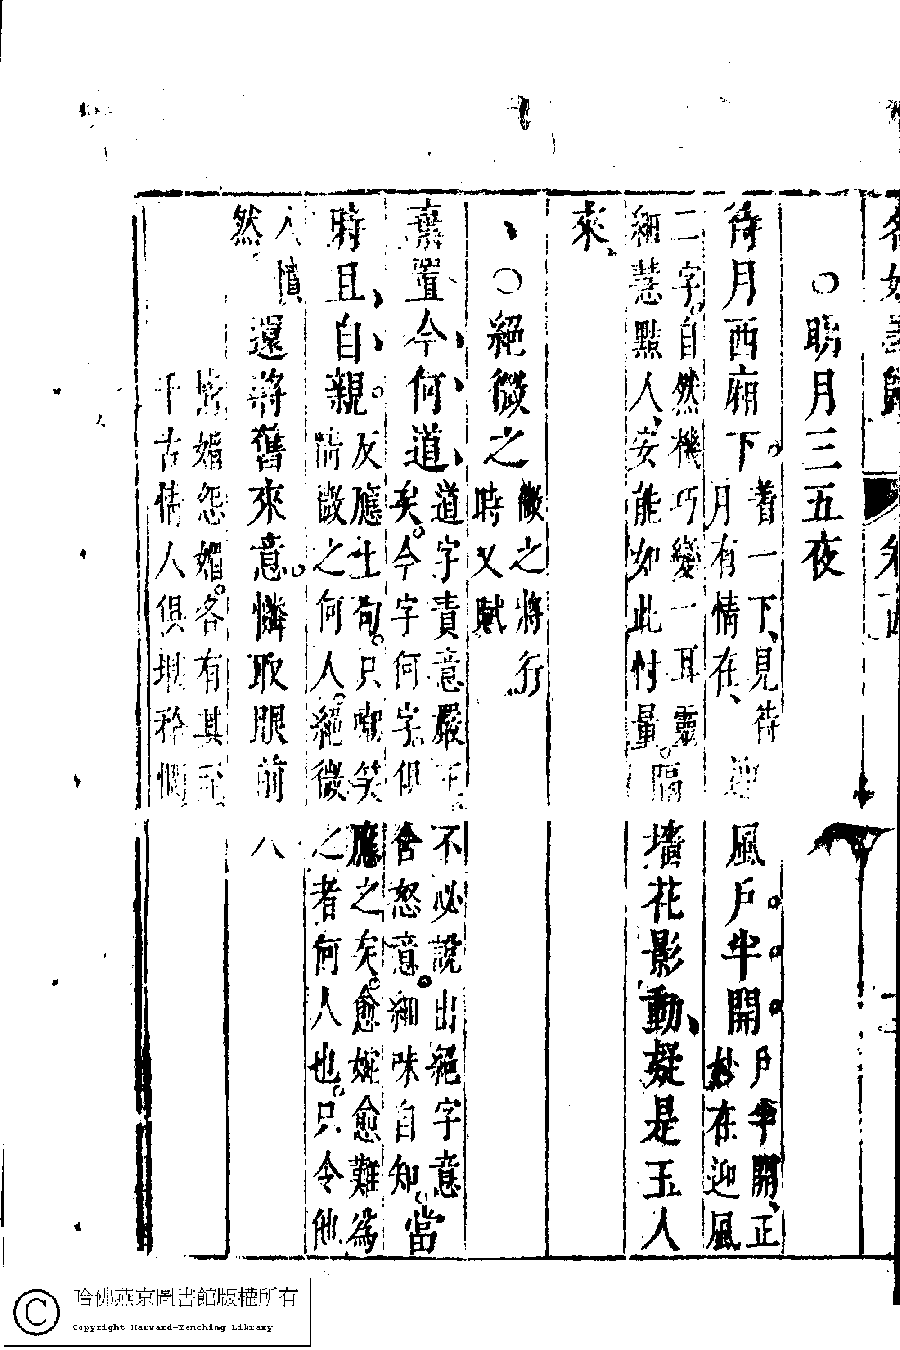 ○明月三五夜
待月西廂下。着一下、見待月有情在、迎風戶半開戶半開、正妙在迎風
二字。自然機巧變一耳靈細慧點人、安能如此忖量。隔墻花影動、疑是玉人
來、
○絕微之微之將行時又賦
棄置今何道、道字責意嚴正。不必說出絕字意矣。今字何字俱含怒意。細味自知。當
時且自親。反應上句。只嘲笑應之矣。愈婉愈難為情微之何人。絕微之者何人也。只令他
人憤然還將舊來意。憐取眼前人
媚怨媚。各有其至千古情人俱堪矜
哈佛燕京圖書館版權所有
Copyright Harvard-Yenching Library